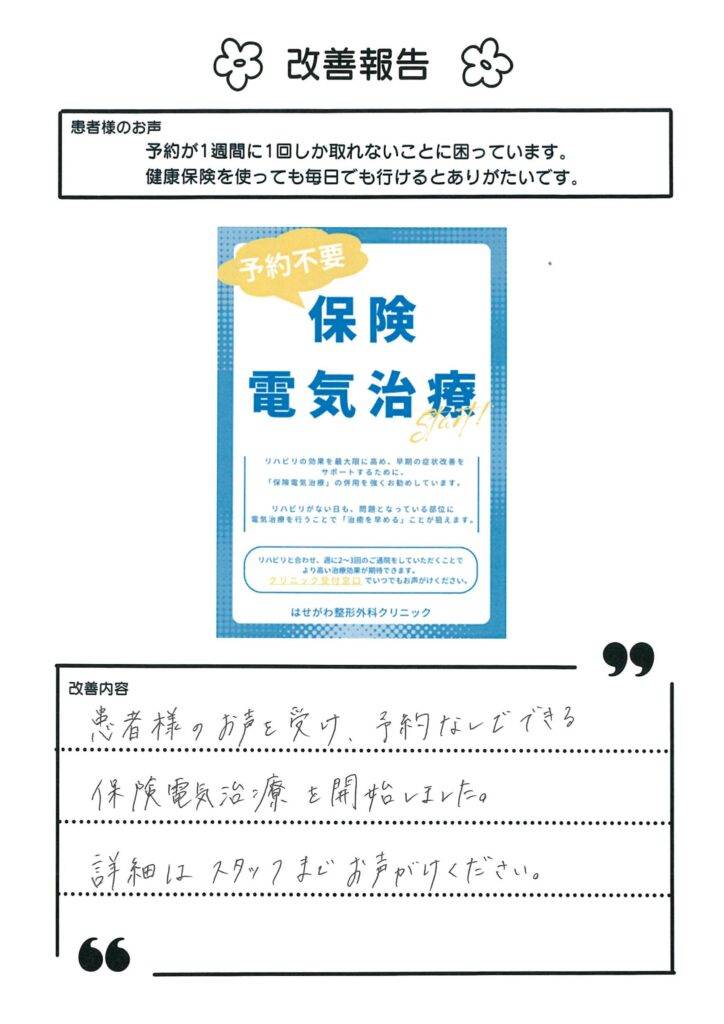 改善報告
患者様のお声
予約が1週間に1回しか取れないことに困っています。
健康保険を使っても毎日でも行けるとありがたいです。
予約不要
保険
電気治療
Start!
リハビリの効果を最大限に高め、早期の症状改善を
サポートするために、
「保険電気治療」の併用を強くお勧めしています。
リハビリがない日も、問題となっている部位に
電気治療を行うことで「治癒を早める」ことが狙えます。
リハビリと合わせ、週に2〜3回のご通院をしていただくことで
より高い治療効果が期待できます。
クリニック受付窓口でいつでもお声がけください。
はせがわ整形外科クリニック
改善内容
患者様のお声を受け、予約なしでできる
保険電気治療を開始しました。
詳細はスタッフまでお声がけください。